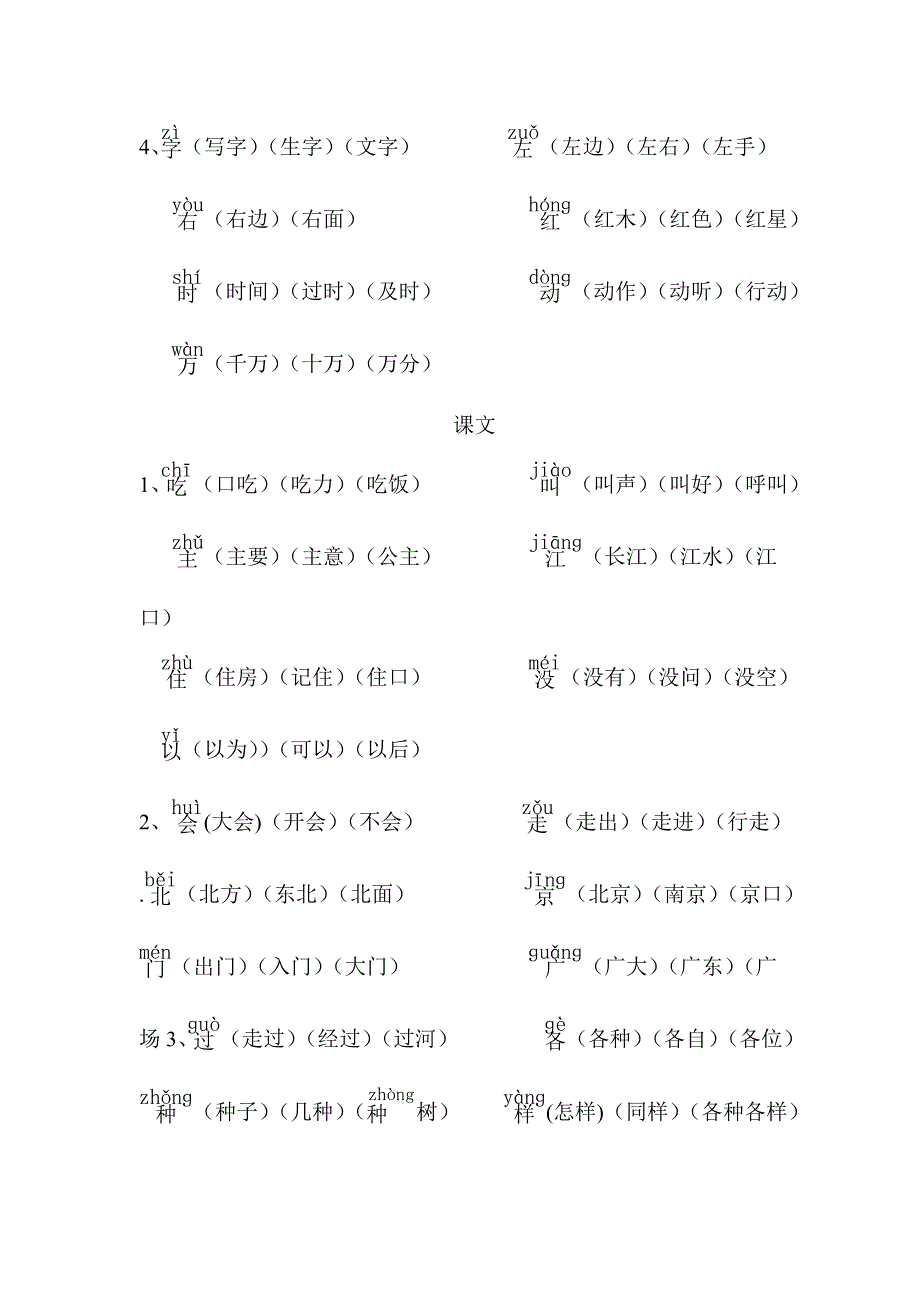 zì zuǒ
4、字（写字）（生字）（文字） 左（左边）（左右）（左手）
yòu hóng
右（右边）（右面） 红（红木）（红色）（红星）
shí dòng
时（时间）（过时）（及时） 动（动作）（动听）（行动）
wàn
万（千万）（十万）（万分）
课文
chī jiào
1、吃（口吃）（吃力）（吃饭） 叫（叫声）（叫好）（呼叫）
zhǔ jiāng
主（主要）（主意）（公主） 江（长江）（江水）（江
口）
zhù méi
住（住房）（记住）（住口） 没（没有）（没问）（没空）
yǐ
以（以为））（可以）（以后）
huì zǒu
2、会(大会)（开会）（不会） 走（走出）（走进）（行走）
běi jīng
.北（北方）（东北）（北面） 京（北京）（南京）（京口）
mén guǎng
门（出门）（入门）（大门） 广（广大）（广东）（广
guò gè
场 3、过（走过）（经过）（过河） 各（各种）（各自）（各位）
zhǒng zhòng yàng
种（种子）（几种）（种 树） 样(怎样)（同样）（各种各样）